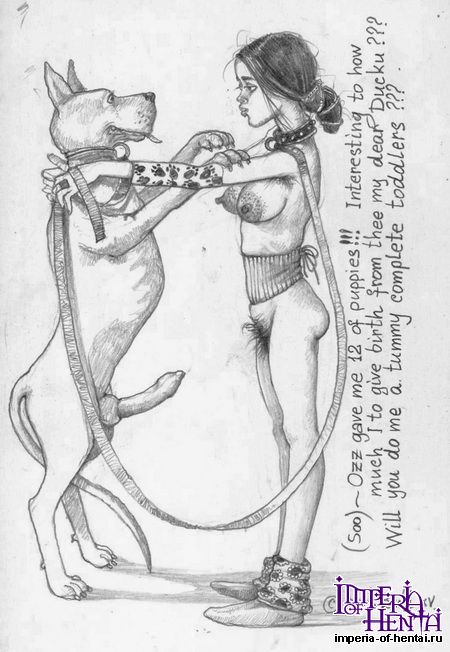 (Soo) ~ Ozz gave me 12 of puppies!!! Interesting to how
much I to give birth from thee my dear Ducku ???
Will you do me a tummy complete toddlers ???
©
IMPERIA
OF HENTAI
imperia-of-hentai.ru